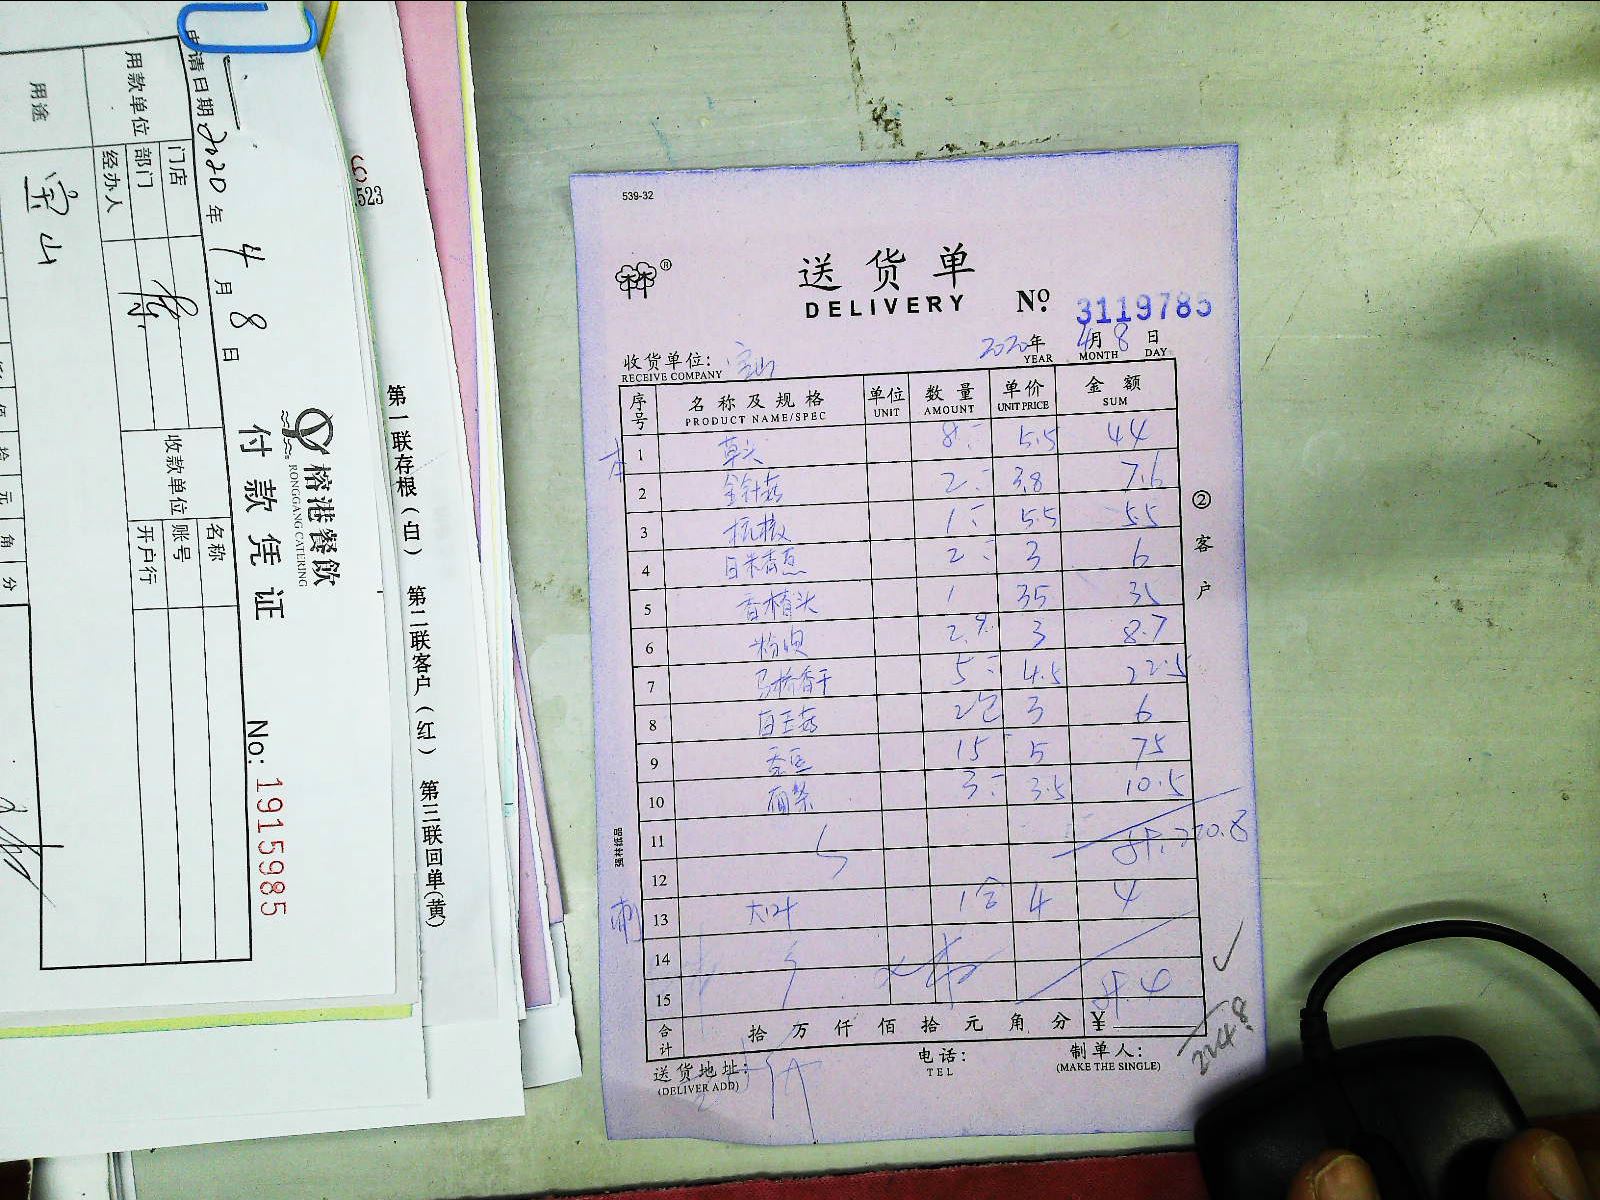 539-32
送货单
DELIVERY
No. 3119785
2020年 4月 8日
YEAR MONTH DAY
收货单位: 宝山
RECEIVE COMPANY
序号 名称及规格 单位 数量 单价 金额
PRODUCT NAME/SPEC UNIT AMOUNT UNIT PRICE SUM
1 草头 8 5.5 44
2 金针菇 2 3.8 7.6
3 杭椒 1 5.5 5.5
4 2 3 6
5 香椿头 1 35 35
6 2.9 3 8.7
7 马桥香干 5 4.5 22.5
8 白玉菇 2包 3 6
9 15 5 75
10 3 3.5 10.5
11 220.8
12
13 大叶 1合 4 4
14
15 4
合计 拾 万 仟 佰 拾 元 角 分 ¥
224.8
送货地址: 电话: 制单人:
(DELIVER ADD) TEL (MAKE THE SINGLE)
②客户
强林纸品
榕港餐飲
RONGGANG CATERING
付款凭证
No: 1915985
申请日期 2020年 4月 8日
用款单位
门店
部门
经办人
收款单位
名称
账号
开户行
用途
宝山
拾 元 角 分
第一联存根(白) 第二联客户(红) 第三联回单(黄)
523